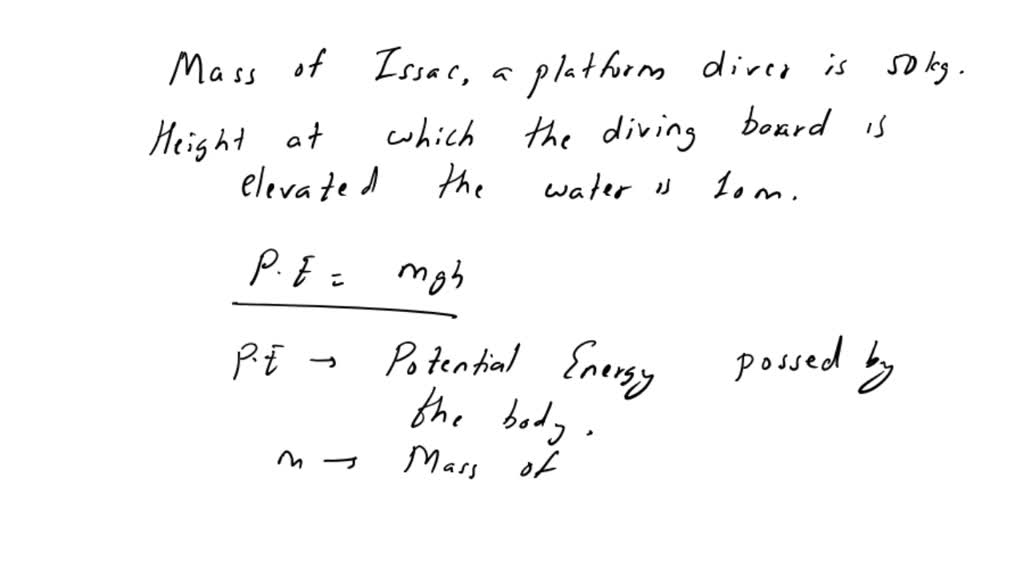 Mass of Issac, a platform diver is 50kg.
Height at which the diving board is
elevated the water is 10m.
P.E = mgh
P.E → Potential Energy possed by
the body.
m → Mass of